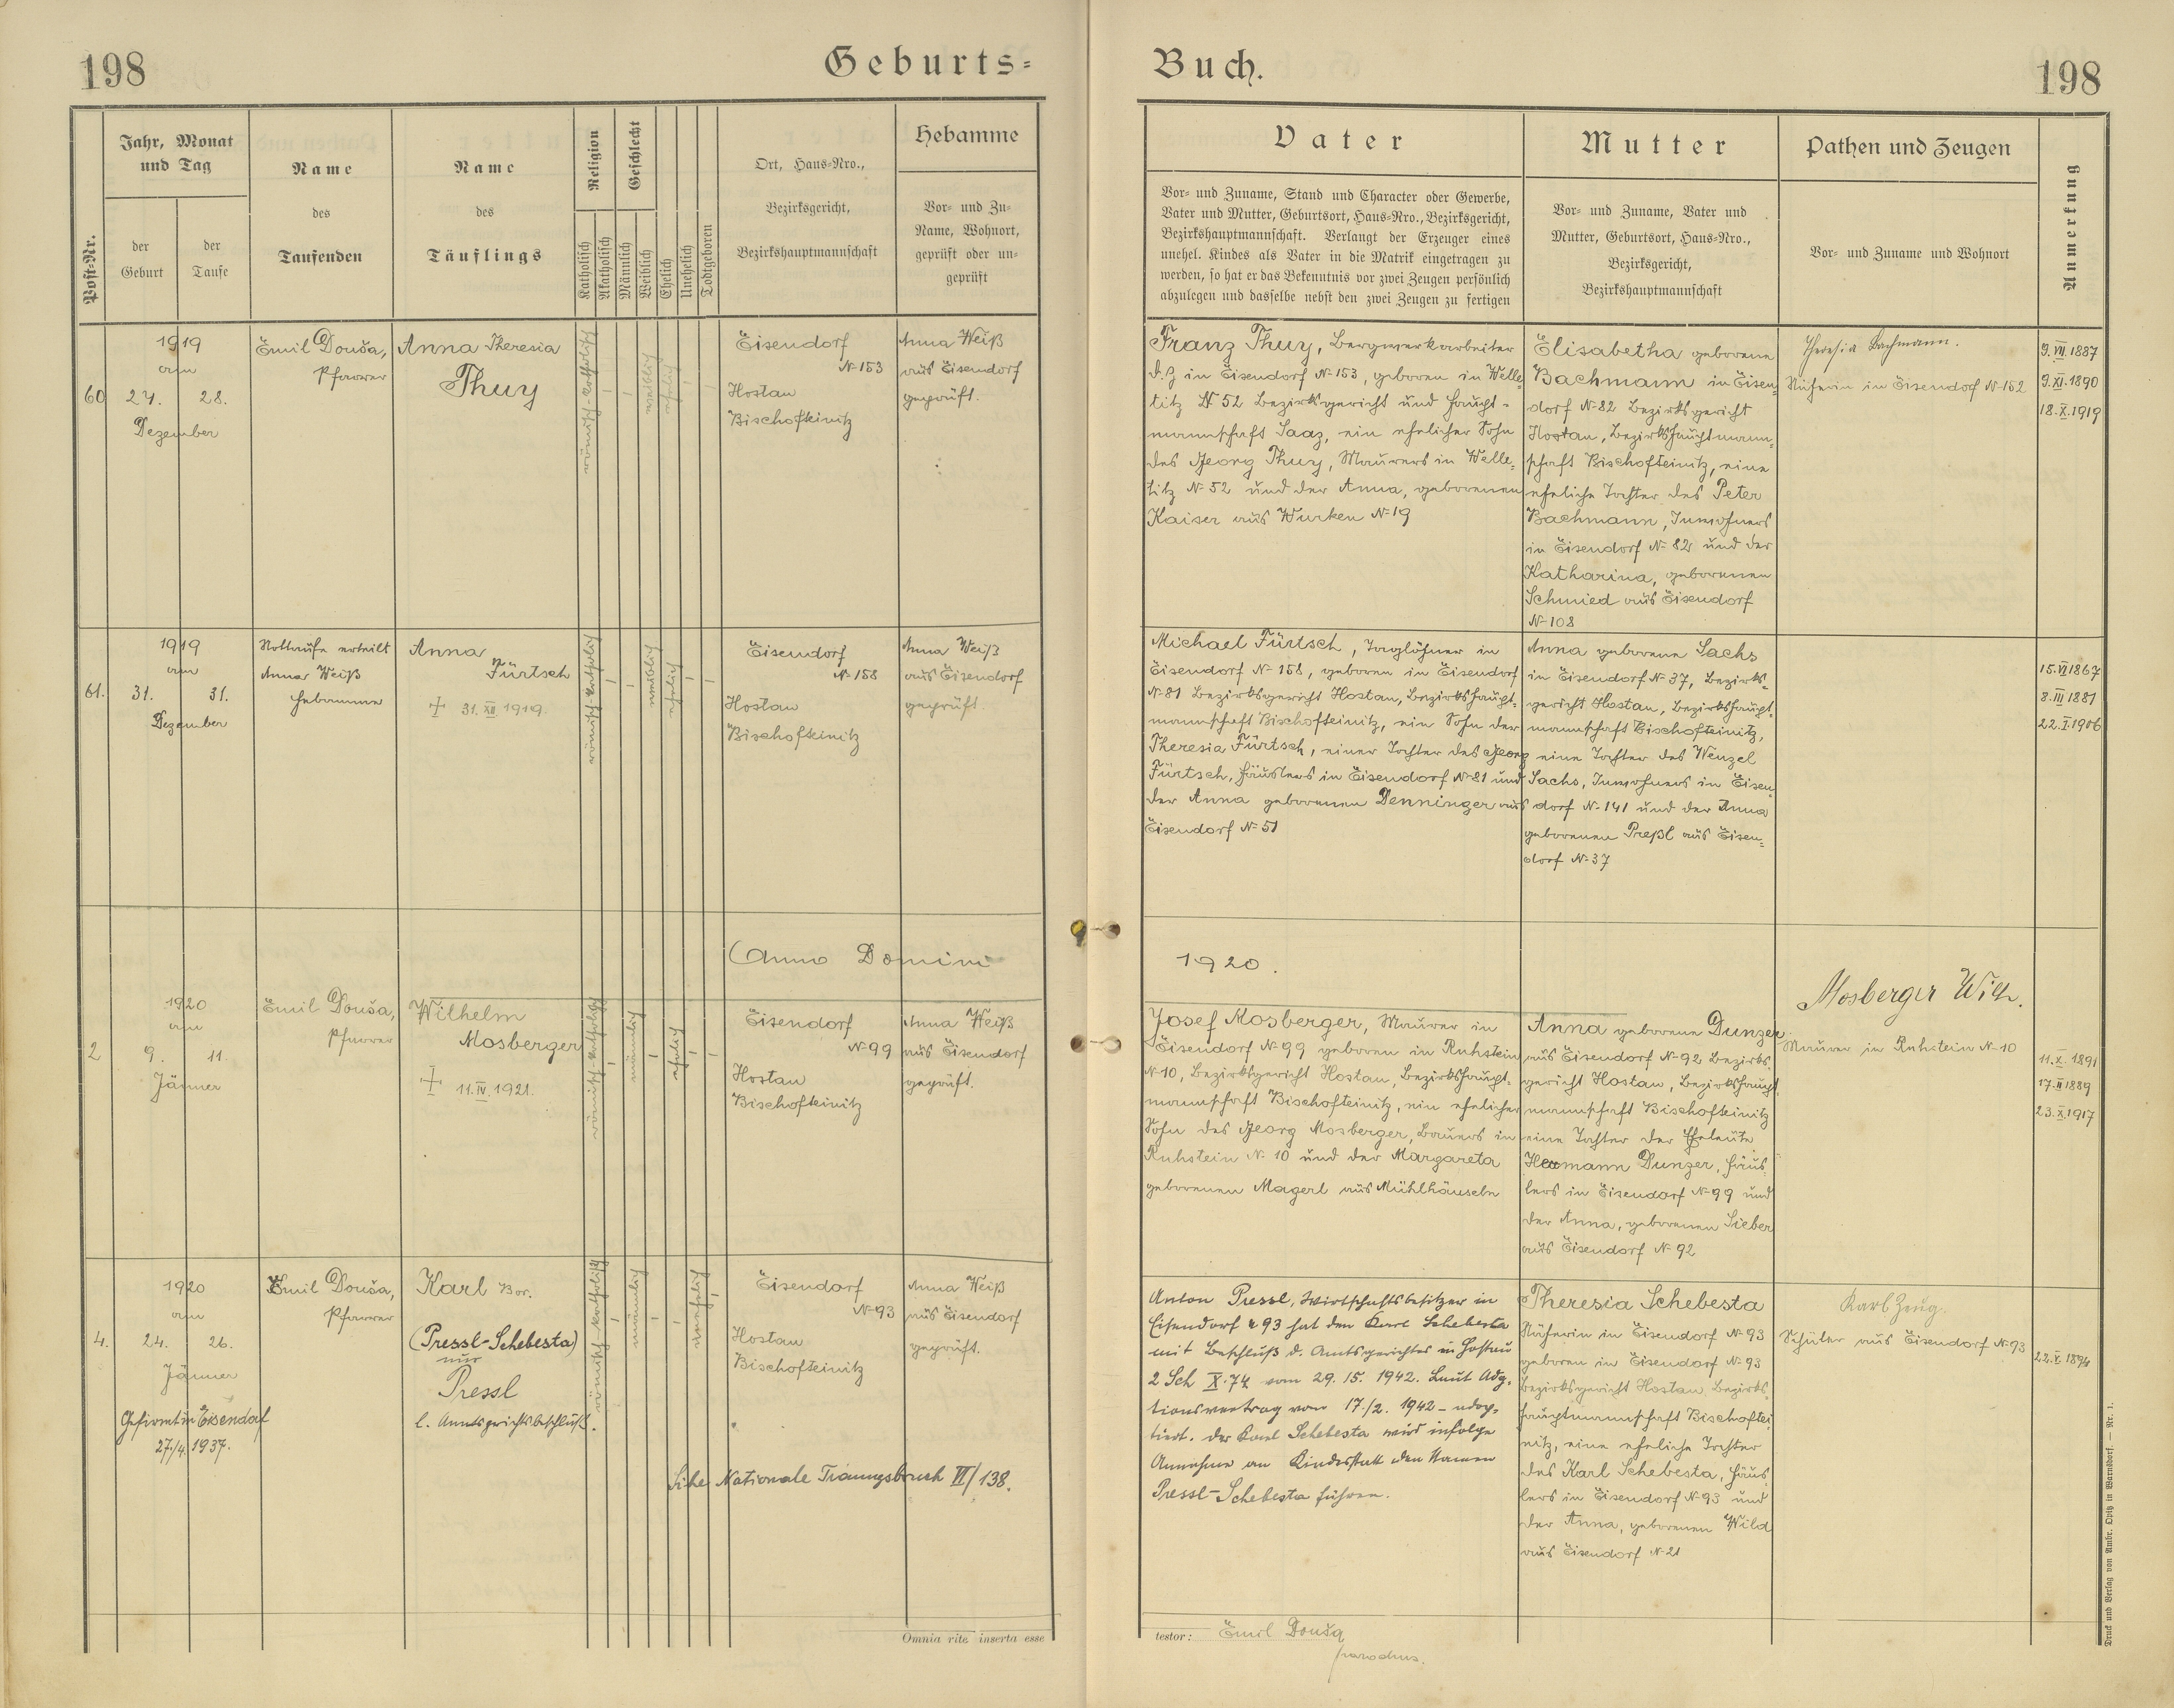 198
Geburts=
Buch.
198
Post=Nr.
Jahr, Monat
und Tag
der
Geburt
der
Taufe
Name
des
Taufenden
Name
des
Täuflings
Religion
Katholisch
Akatholisch
Geschlecht
Männlich
Weiblich
Ehelich
Unehelich
Todtgeboren
Ort, Haus=Nro.,
Bezirksgericht,
Bezirkshauptmannschaft
Hebamme
Vor= und Zu=
Name, Wohnort,
geprüft oder un=
geprüft
Vater
Vor= und Zuname, Stand und Character oder Gewerbe,
Vater und Mutter, Geburtsort, Haus=Nro., Bezirksgericht,
Bezirkshauptmannschaft. Verlangt der Erzeuger eines
unehel. Kindes als Vater in die Matrik eingetragen zu
werden, so hat er das Bekenntnis vor zwei Zeugen persönlich
abzulegen und dasselbe nebst den zwei Zeugen zu fertigen
Mutter
Vor= und Zuname, Vater und
Mutter, Geburtsort, Haus=Nro.,
Bezirksgericht,
Bezirkshauptmannschaft
Pathen und Zeugen
Vor= und Zuname und Wohnort
Anmerkung
60
1919
am
27. 28.
Dezember
Emil Douša,
Pfarrer
Anna Theresia
Thuy
römisch-katholisch
weiblich
ehelich
Eisendorf
N-153
Hostau
Bischofteinitz
Anna Weiß
aus Eisendorf
geprüft.
Franz Thuy, Bergwerkarbeiter
d.Z in Eisendorf N-153, geboren in Welle-
titz N 52 Bezirksgericht und Haupt-
mannschaft Saaz, ein ehelicher Sohn
des Georg Thuy, Maurers in Welle-
titz N-52 und der Anna, geborenen
Kaiser aus Wurken N-19
Elisabetha geborene
Bachmann in Eisen-
dorf N-82 Bezirksgericht
Hostau, Bezirkshauptmann-
schaft Bischofteinitz, eine
eheliche Tochter des Peter
Bachmann, Inwohners
in Eisendorf N-82 und der
Katharina, geborenen
Schmied aus Eisendorf
N-108
Theresia Bachmann.
Näherin in Eisendorf N-152
9.VII.1887
9.XI.1890
18.X.1919
61.
1919
am
31. 31.
Dezember
Nottaufe erteilt
Anna Weiß
Hebamme
Anna
Fürtsch
+ 31.XII.1919.
römisch-katholisch
weiblich
ehelich
Eisendorf
N-158
Hostau
Bischofteinitz
Anna Weiß
aus Eisendorf
geprüft.
Michael Fürtsch, Taglöhner in
Eisendorf N-158, geboren in Eisendorf
N-81 Bezirksgericht Hostau, Bezirkshaupt-
mannschaft Bischofteinitz, ein Sohn der
Theresia Fürtsch, einer Tochter des Georg
Fürtsch, Häuslers in Eisendorf N-81 und
der Anna geborenen Denninger aus
Eisendorf N-51
Anna geborene Sachs
in Eisendorf N-37, Bezirks-
gericht Hostau, Bezirkshaupt-
mannschaft Bischofteinitz,
eine Tochter des Wenzel
Sachs, Inwohners in Eisen-
dorf N-141 und der Anna
geborenen Preßl aus Eisen-
dorf N-37
15.VI1867
8.III1881
22.I.1906
Anno Domini
1920.
2
1920
am
9. 11.
Jänner
Emil Douša,
Pfarrer
Wilhelm
Mosberger
+ 11.IV.1921.
römisch-katholisch
männlich
ehelich
Eisendorf
N-99
Hostau
Bischofteinitz
Anna Weiß
aus Eisendorf
geprüft.
Josef Mosberger, Maurer in
Eisendorf N-99 geboren in Ruhstein
N-10, Bezirksgericht Hostau, Bezirkshaupt-
mannschaft Bischofteinitz, ein ehelicher
Sohn des Georg Mosberger, Bauers in
Ruhstein N-10 und der Margareta
geborenen Magerl aus Mühlhäuseln
Anna geborene Dunzer
aus Eisendorf N-92 Bezirks-
gericht Hostau, Bezirkshaupt-
mannschaft Bischofteinitz
eine Tochter der Eheleute
Hermann Dunzer, Häus-
lers in Eisendorf N-99 und
der Anna, geborenen Sieber
aus Eisendorf N-92
Mosberger Wilh.
Maurer in Ruhstein N-10
11.X.1891
17.II1889
23.X.1917
4.
1920
am
24. 26.
Jänner
Gefirmt in Eisendorf
27./4. 1937.
Emil Douša,
Pfarrer
Karl Bor.
(Pressl-Schebesta)
nur
Pressl
l. Amtsgerichtsbeschluß.
römisch-katholisch
männlich
unehelich
Eisendorf
N-93
Hostau
Bischofteinitz
Anna Weiß
aus Eisendorf
geprüft.
Siehe Nationale Trauungsbuch VI/138.
Anton Pressl, Wirtschaftsbesitzer in
Eisendorf 93 hat den Karl Schebesta
mit Beschluß d. Amtsgerichtes in Hostau
2 Sch X.74 vom 29. 15. 1942. Laut Adop-
tionsvertrag vom 17./2. 1942 - adop-
tiert. Der Karl Schebesta wird infolge
Annahme an Kindesstatt den Namen
Pressl-Schebesta führen.
Theresia Schebesta
Näherin in Eisendorf N-93
geboren in Eisendorf N-93
Bezirksgericht Hostau, Bezirks-
hauptmannschaft Bischoftei-
nitz, eine eheliche Tochter
des Karl Schebesta, Häus-
lers in Eisendorf N-93 und
der Anna, geborenen Wild
aus Eisendorf N-21
Karl Zeug.
Schüler aus Eisendorf N-93
22.X.1894
Omnia rite inserta esse
testor: Emil Douša
parochus.
Druck und Verlag von Ambr. Opitz in Warnsdorf. — Nr. 1.